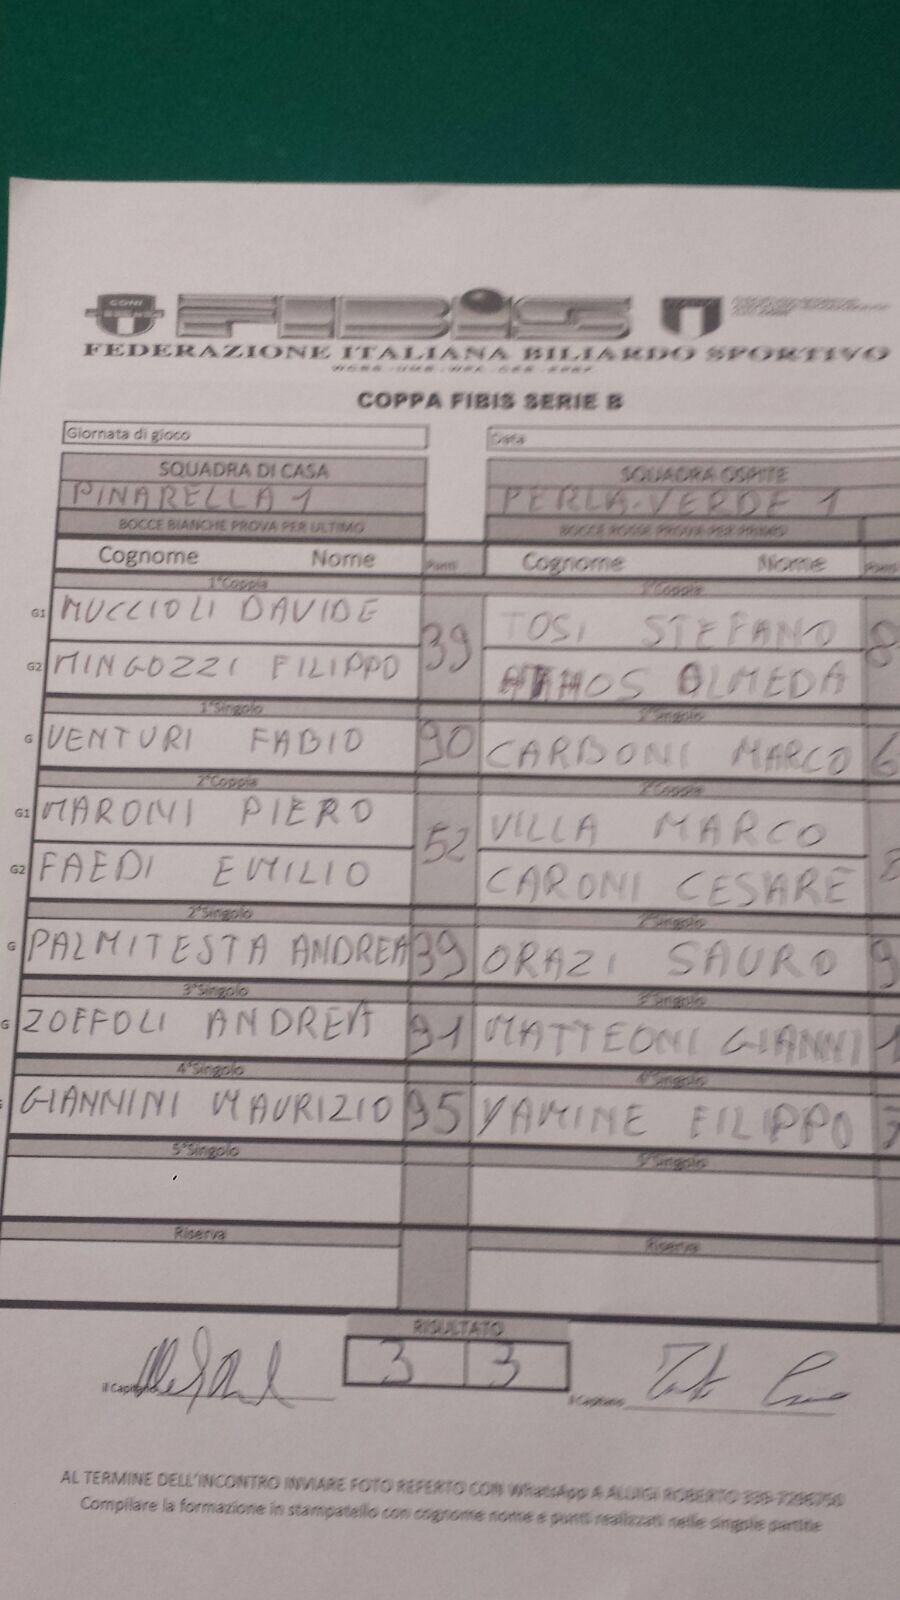 CONI
FIBiS
FEDERAZIONE ITALIANA BILIARDO SPORTIVO
COPPA FIBIS SERIE B
Giornata di gioco Data
SQUADRA DI CASA SQUADRA OSPITE
PINARELLA 1 PERLA-VERDE 1
BOCCE BIANCHE PROVA PER ULTIMO BOCCE ROSSE PROVA PER PRIMO
Cognome Nome Punti Cognome Nome Punti
1°Coppia 1°Coppia
G1 MUCCIOLI DAVIDE 39 TOSI STEFANO 8
G2 MINGOZZI FILIPPO ATHOS ALMEDA
1°Singolo 1°Singolo
G VENTURI FABIO 90 CARBONI MARCO 6
2°Coppia 2°Coppia
G1 MARONI PIERO 52 VILLA MARCO 8
G2 FAEDI EMILIO CARONI CESARE
2°Singolo 2°Singolo
G PALMITESTA ANDREA 39 ORAZI SAURO 9
3°Singolo 3°Singolo
G ZOFFOLI ANDREA 91 MATTEONI GIANNI 1
4°Singolo 4°Singolo
GIANNINI MAURIZIO 95 YAMINE FILIPPO 7
5°Singolo 5°Singolo
Riserva Riserva
RISULTATO
3 3
Il Capitano Il Capitano
AL TERMINE DELL'INCONTRO INVIARE FOTO REFERTO CON WhatsApp A ALUIGI ROBERTO
Compilare la formazione in stampatello con cognome nome e punti realizzati nelle singole partite